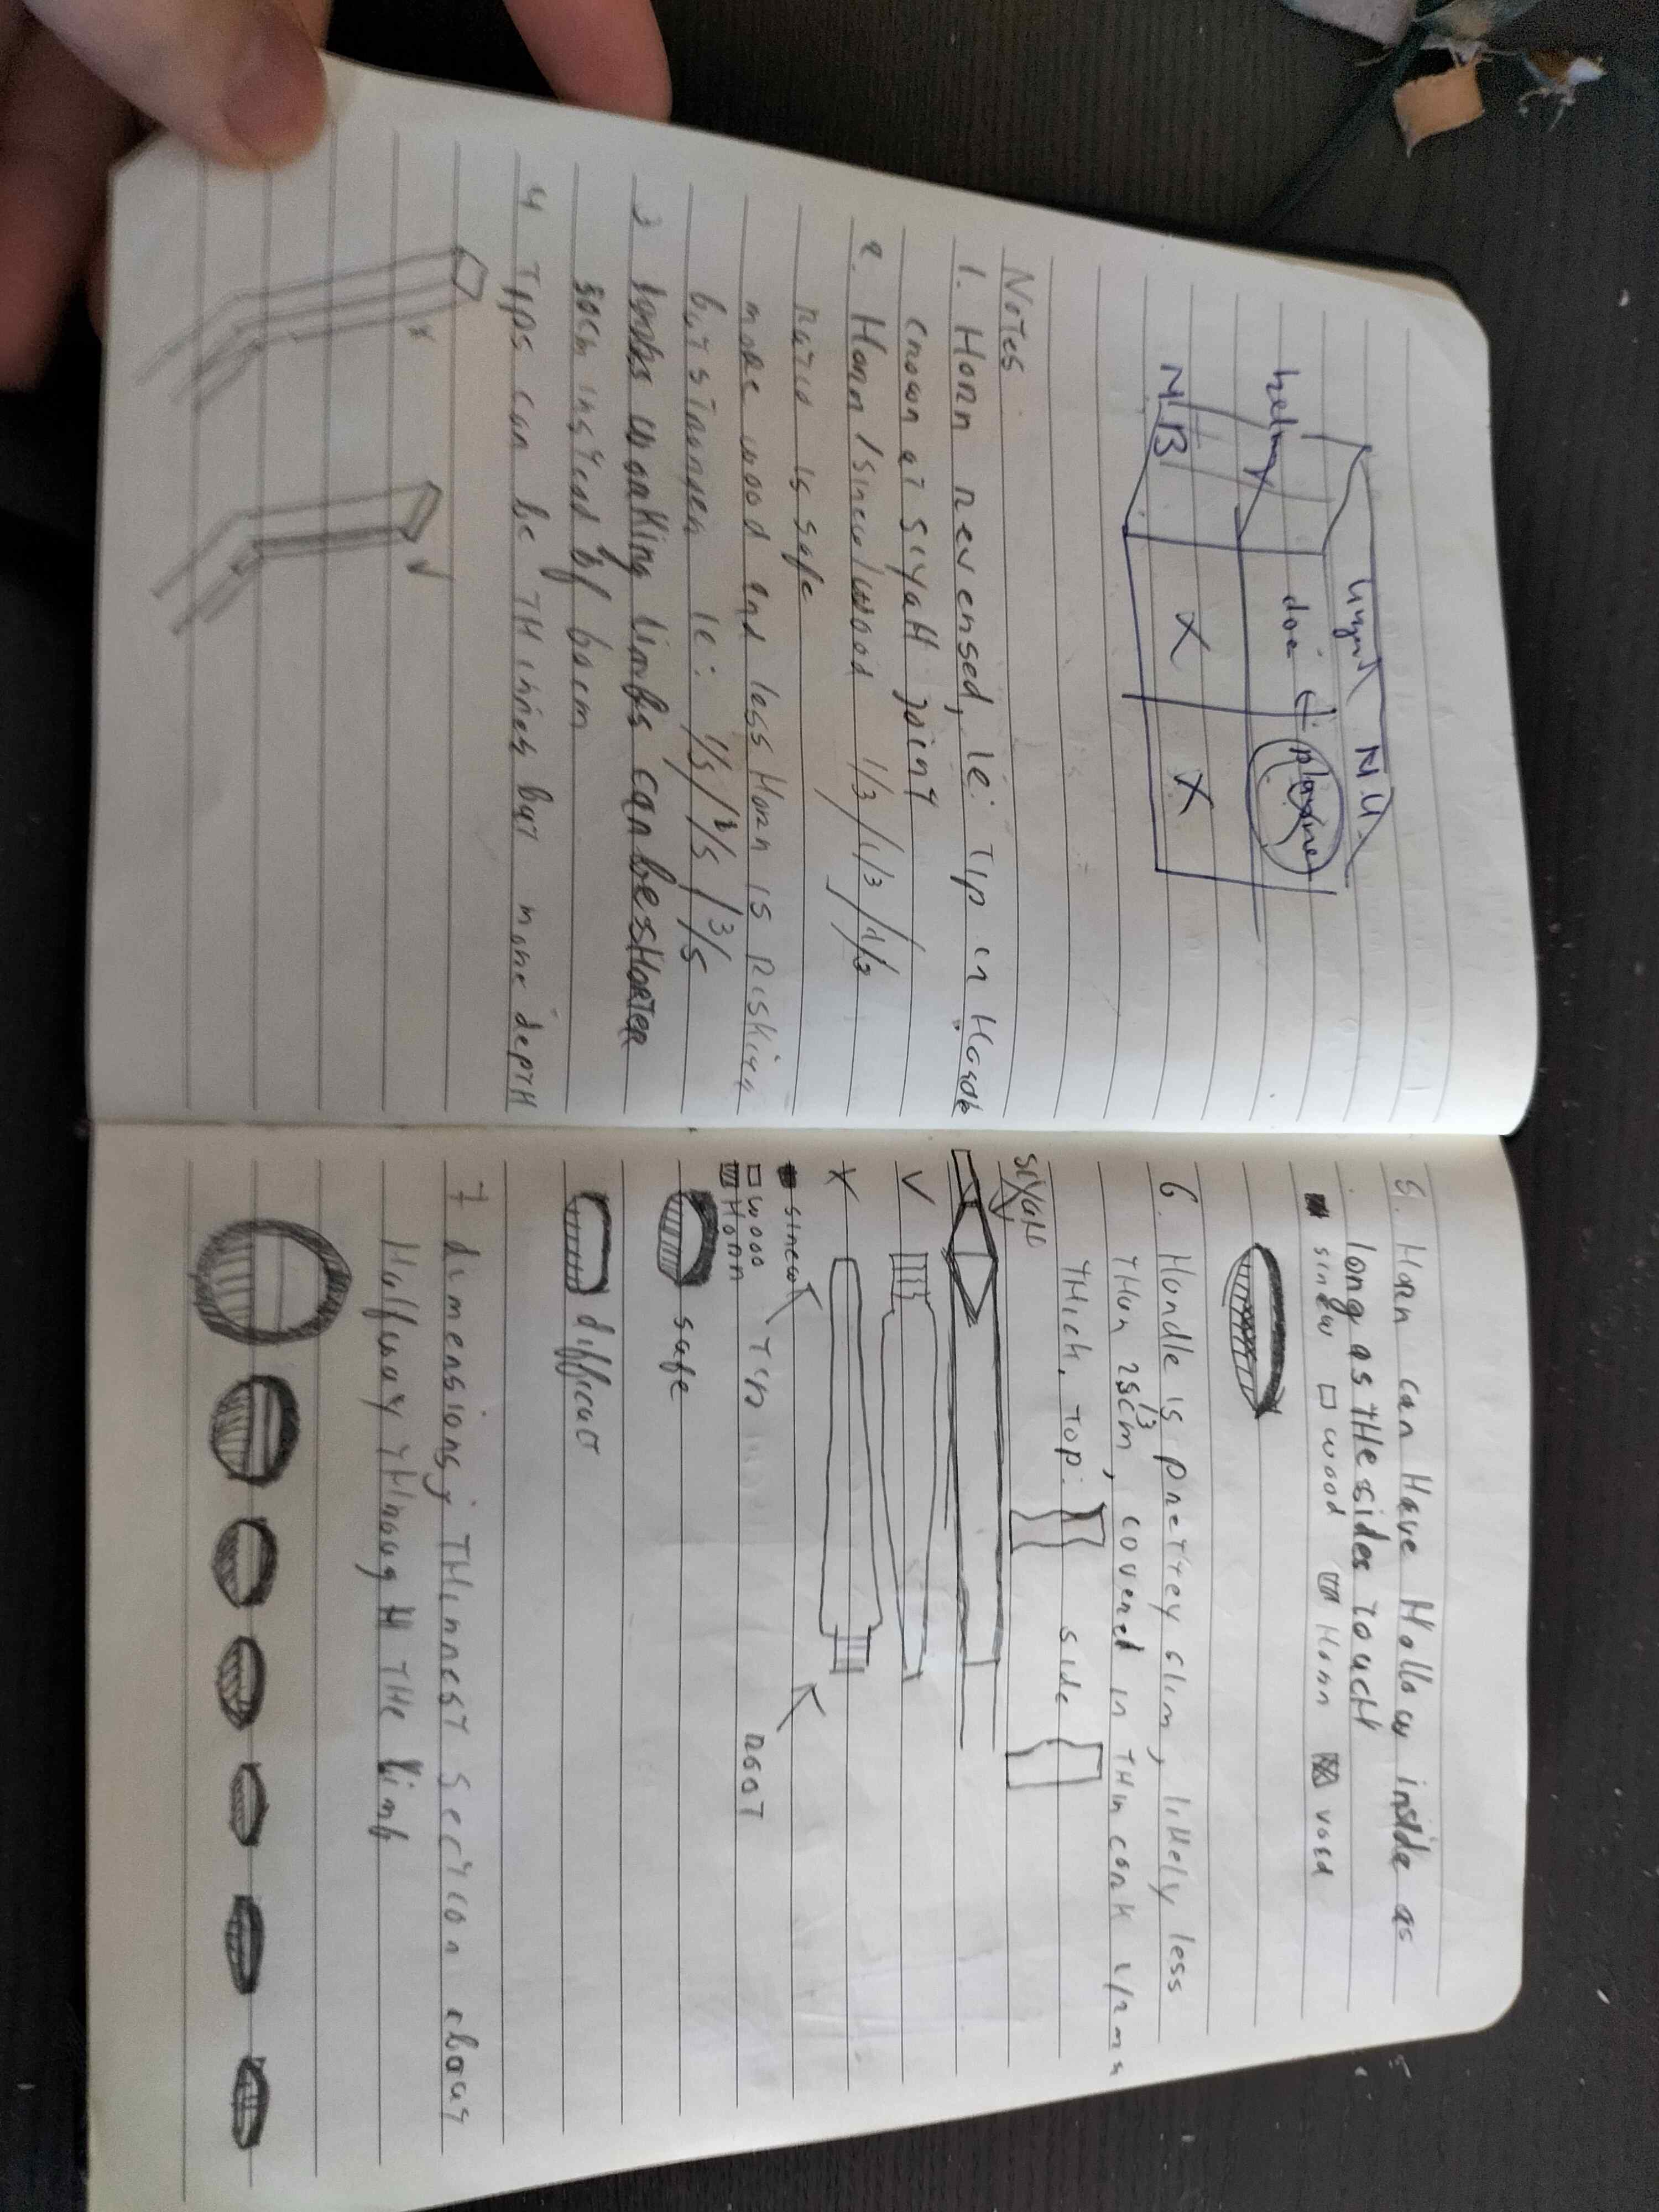 N.U.
doel
X
X
Notes
1. Horn reversed, ie: Tip in Handle
crown at siyaH joint
2. Horn/sinew/wood 1/3/1/3/1/3
ratio is safe
more wood and less Horn is riskier
but stronger ie: 1/5/1/5/3/5
3 limbs working limbs can be sHorTer
4 Tips can be THinner but more depTH
x
v
5. Horn can Have Hollow inside as
long as THe sides ToucH
sinew wood Horn void
6. Handle is preTTey slim, liKely less
THan cm, covered in THin corK 1/2mm
THick. Top: side
siyaH
V
X
sinew
wood Tip rooT
Horn
safe
difficulT
7 dimensions; THinnesT secTion abouT
Halfway THrougH THe limb